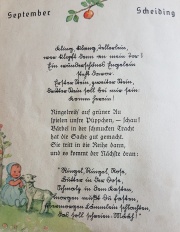 September Scheiding
Kling, Klang, Gloria,
wer klopft denn an mein Tor?
Ein wunderschönes Engelein
steht davor.
Erster Stein, zweiter Stein,
dritter Stein soll bei mir sein
Komm herein!
Ringelreih' auf grüner Au
spielen unsre Püppchen, — schau!
Bärbel in der schmucken Tracht
hat die Sache gut gemacht.
Sie tritt in die Reihe dann,
und es kommt der Nächste dran:
"Ringel, Ringel, Rose,
Butter in der Dose,
Schmalz in dem Kasten,
morgen woll'n wir fasten,
übermorgen Lämmlein schlachten,
das soll schreien: Mäh!"